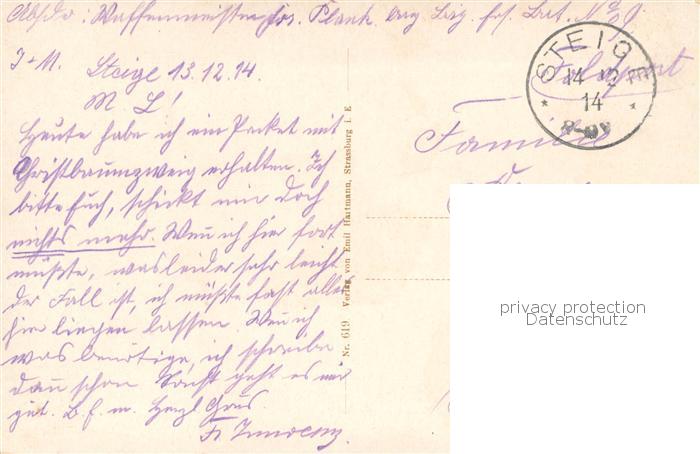 Absdr: Waffenmeister
J. M. Steige 13.12.14.
M. L!
Heute habe ich ein Packet mit
Christbaumzweig erhalten. Ich
bitte Euch, schickt mir doch
nichts mehr. Wenn ich hier fort
müßte, was leider sehr leicht
der Fall ist, ich müßte fast alles
hier liegen lassen. Wenn ich
was benötige, ich schreibe
dann schon. Sonst geht es mir
gut. B. f. m. Herzl Grus
Fr. Innocenz.
Nr. 619 Verlag von Emil Hartmann, Strassburg i. E
STEIGE
14 12
14
8-9V
Feldpost
Familie
privacy protection
Datenschutz